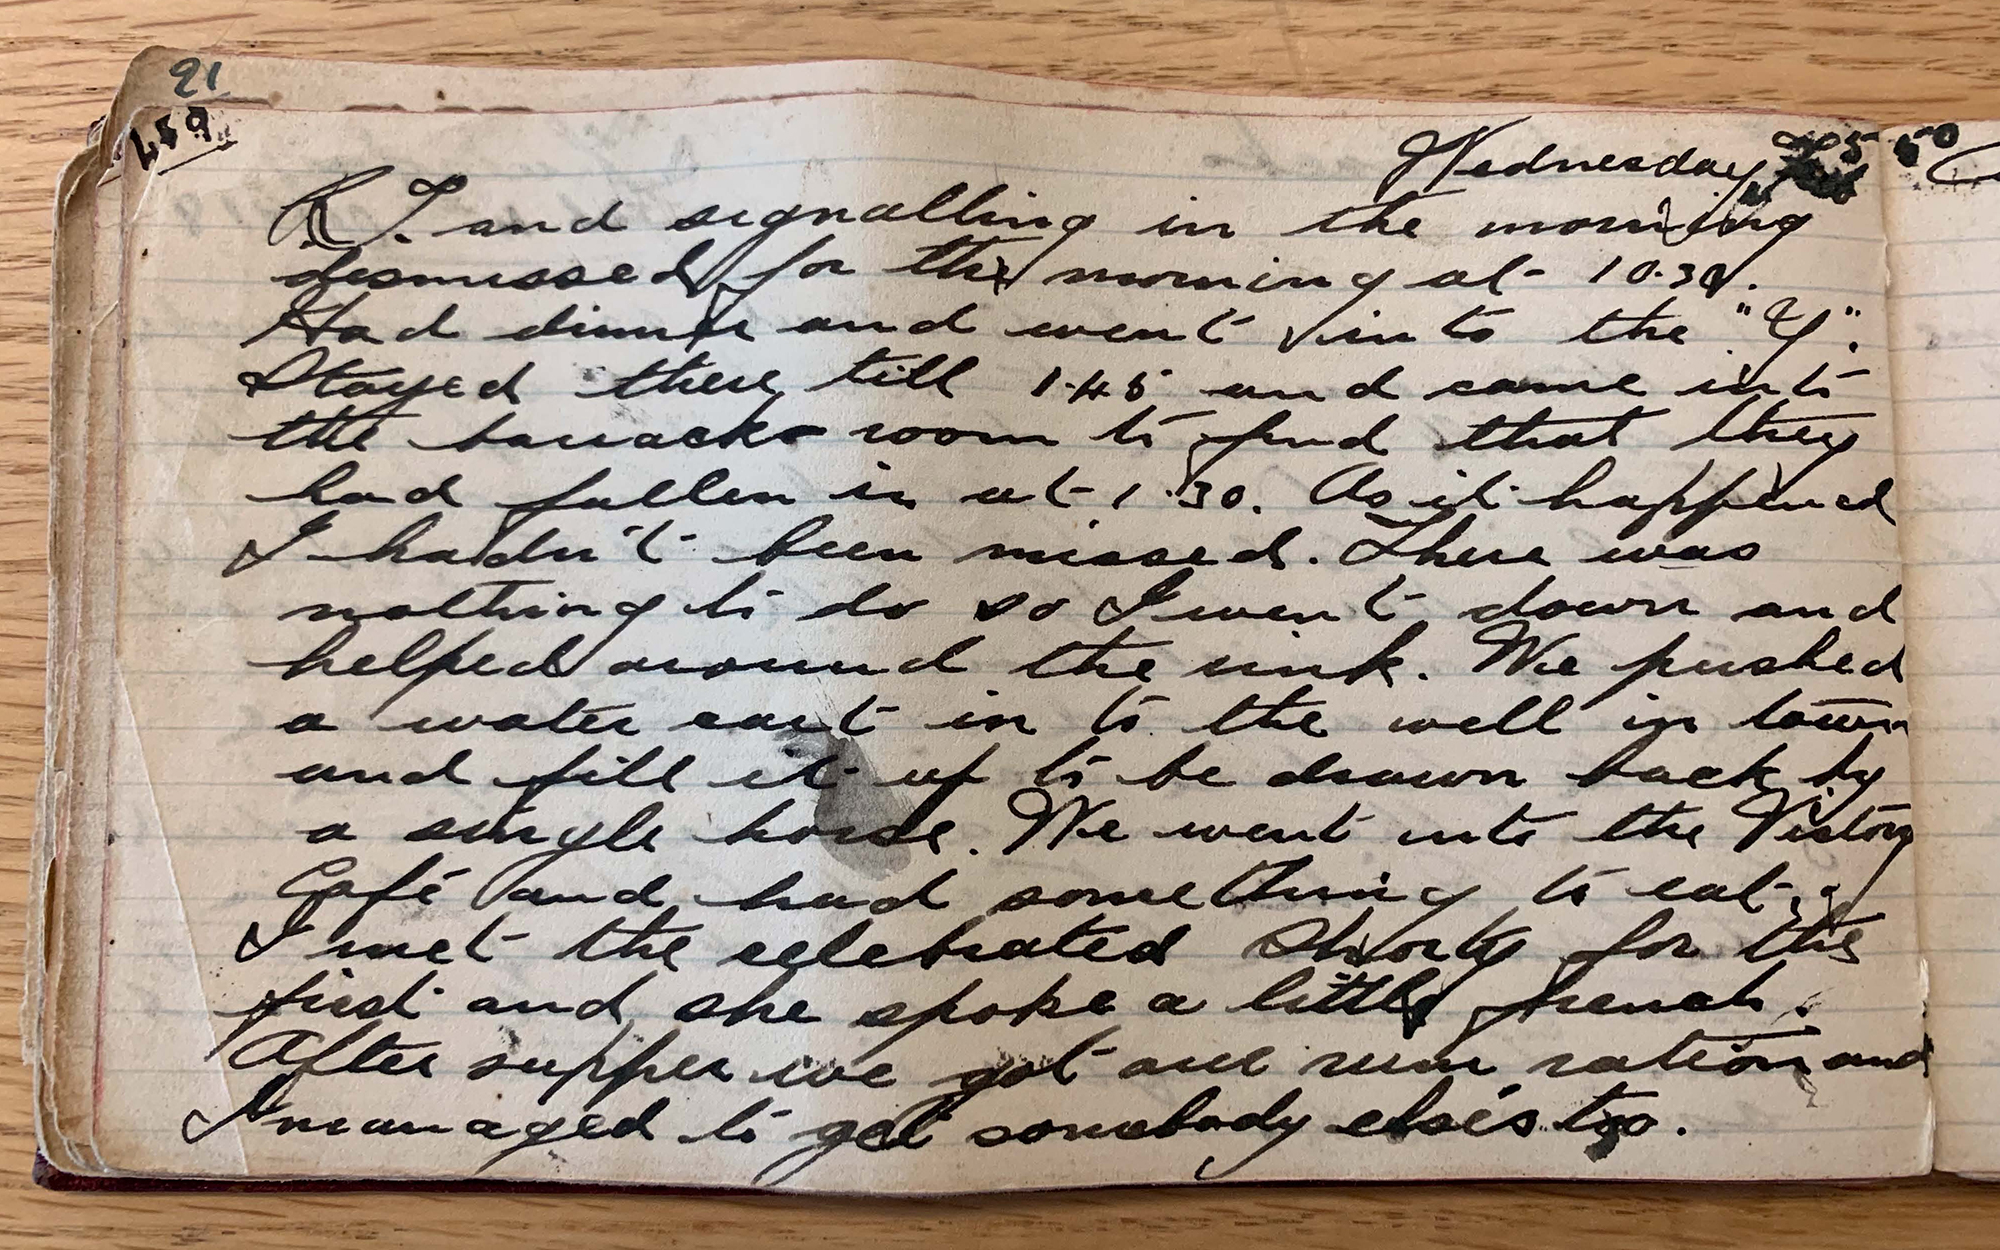 91
459
Wednesday
R.T. and signalling in the morning
dismissed for the morning at 10.30.
Had dinner and went into the "Y".
Stayed there till 1.45 and came into
the barracks room to find that they
had fallen in at 1.30. As it happened
I hadn't been missed. There was
nothing to do so I went down and
helped around the rink. We pushed
a water cart in to the well in town
and fill it up to be drawn back by
a single horse. We went into the Victory
Café and had something to eat.
I met the celebrated Shorty for the
first and she spoke a little french.
After supper we got our rum ration and
I managed to get somebody else's too.